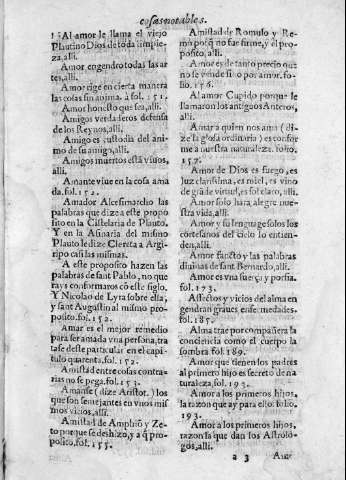 cosas notables.
Al amor le llama el viejo
Plautino Dios de toda limpie-
za,alli.
Amor engendro todas las ar
tes,alli.
Amor rige en cierta manera
las cosas sin anima. fol. 151.
Amor honesto que sea, alli.
Amigos verdaderos defensa
de los Reynos, alli.
Amigo es custodia del ani-
mo de su amigo, alli.
Amigos muertos està viuos,
alli.
Amante viue en la cosa ama
da.fol.152.
Amador Alcesimarcho las
palabras que dize a este propo
sito en la Cistelaria de Plauto.
Y en la Asinaria del mismo
Plauto le dize Clerita a Argi-
ripo casi las mismas.
A este proposito hazen las
palabras de sant Pablo, no que
rays conformaros cō este siglo.
Y Nicolao de Lyra sobre ella,
y sant Augustin al mismo pro-
posito.fol.152.
Amar es el mejor remedio
para ser amada vna persona, tra
tase deste particular en el capi-
tulo quarenta.fol.152.
Amistad entre cosas contra-
rias no se pega.fol.153.
Amanse ( dize Aristot. ) los
que son semejantes en vnos mis
mos vicios,alli.
Amistad de Amphiō y Ze-
to porque se deshizo, y a q̄ pro-
posito.fol.155.
Amistad de Romulo y Re-
mo porq̄ no fue firme, y el pro-
posito, alli.
Amor es de tanto precio que
no se vende sino por amor. fo-
lio.156.
Al amor Cupido porque le
llamaron los antigos Anteros,
alli.
Amar a quien nos ama ( di-
ze la glosa ordinaria ) es confor
me a nuestra naturaleza. folio.
157.
Amor de Dios es fuego, es
luz clarissima, es miel, es vino
es grā de virtud, es sol claro, alli.
Amor solo hara alegre nue-
stra vida, alli.
Amor y su lenguage solos los
cortesanos del cielo lo entien-
den, alli.
Amor sancto y las palabras
diuinas de sant Bernardo, alli.
Amor es vna fuerça y porfia.
fol.173.
Affectos y vicios del alma en
gendran graues enfermedades.
fol.187.
Alma trae por compañera la
conciencia como el cuerpo la
sombra fol.189.
Amor que tienen los padres
al primero hijo es secreto de na
turaleza,fol.193.
Amor a los primeros hijos,
la razon que ay para ello. folio.
193.
Amor a los primeros hijos,
razon la que dan los Astrolo-
gos, alli.
a 3 Amor